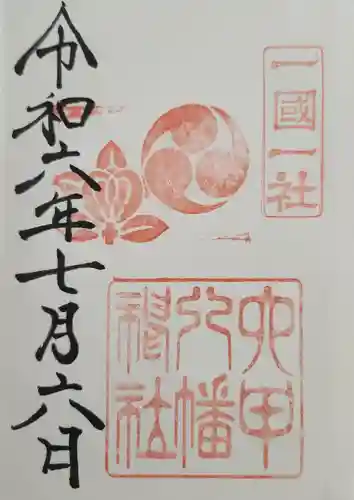 一國一社
六甲
八幡
神社
令和六年七月六日